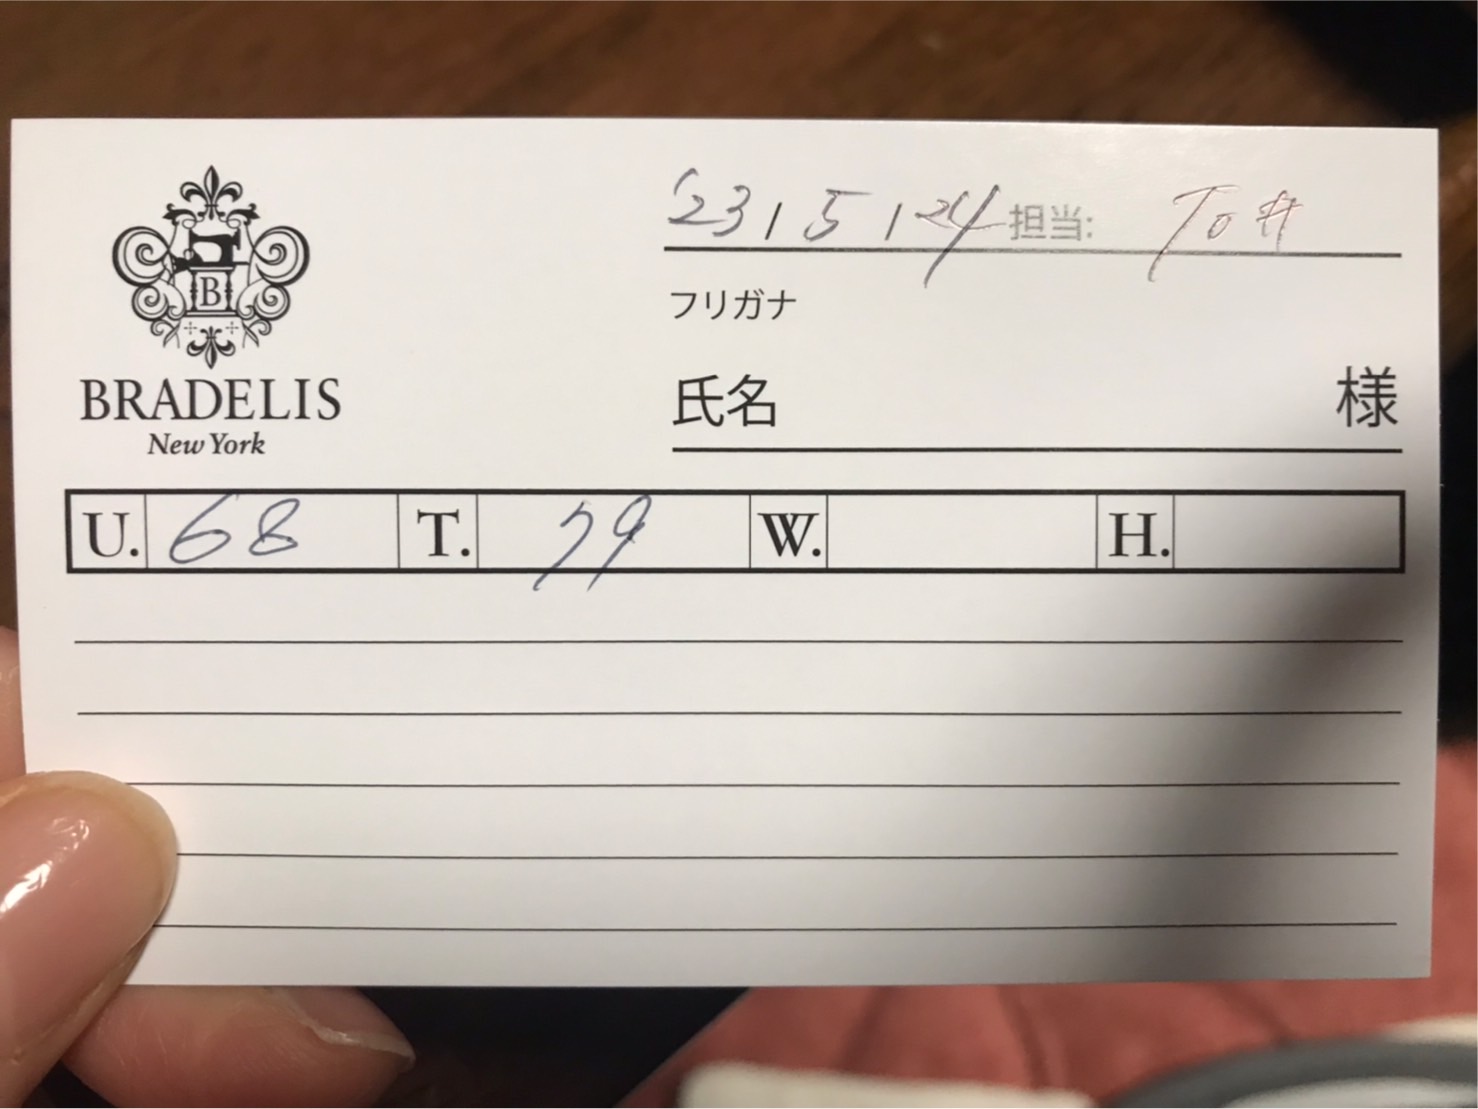 '23 / 5 / 24 担当:
フリガナ
氏名 様
B
BRADELIS
New York
U. 68 T. 79 W. H.